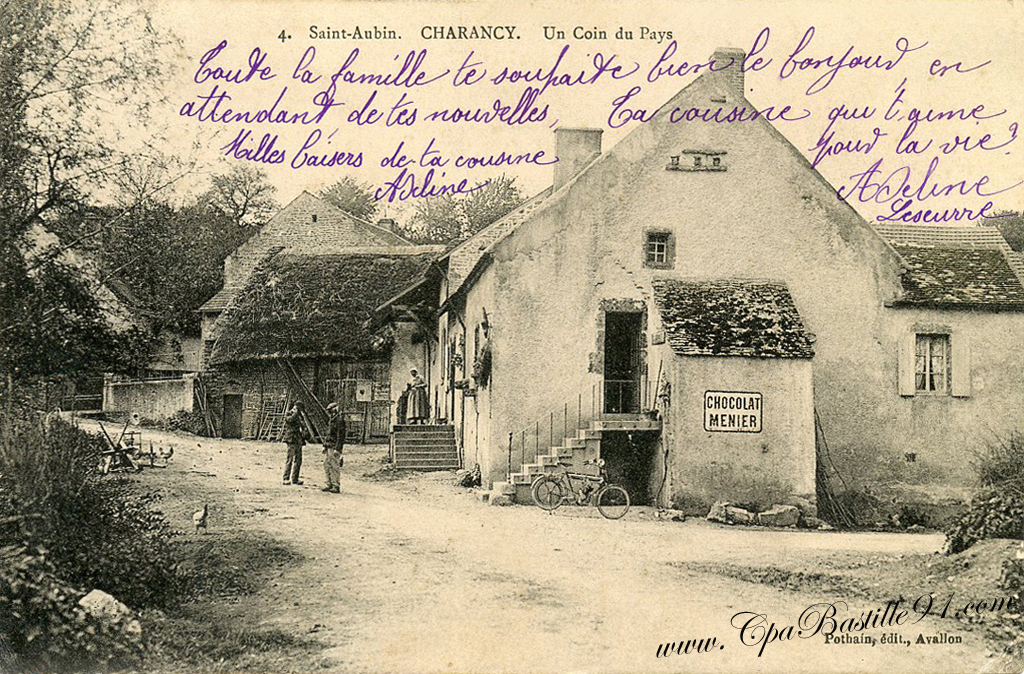 4. Saint-Aubin. CHARANCY. Un Coin du Pays
Toute la famille te souhaite bien le bonjour, en
attendant de tes nouvelles, Ta cousine qui t'aime
pour la vie?
Milles baisers de ta cousine
Adeline
Adeline
Leseurre
CHOCOLAT
MENIER
www.CpaBastille91.com
Pothain, édit., Avallon